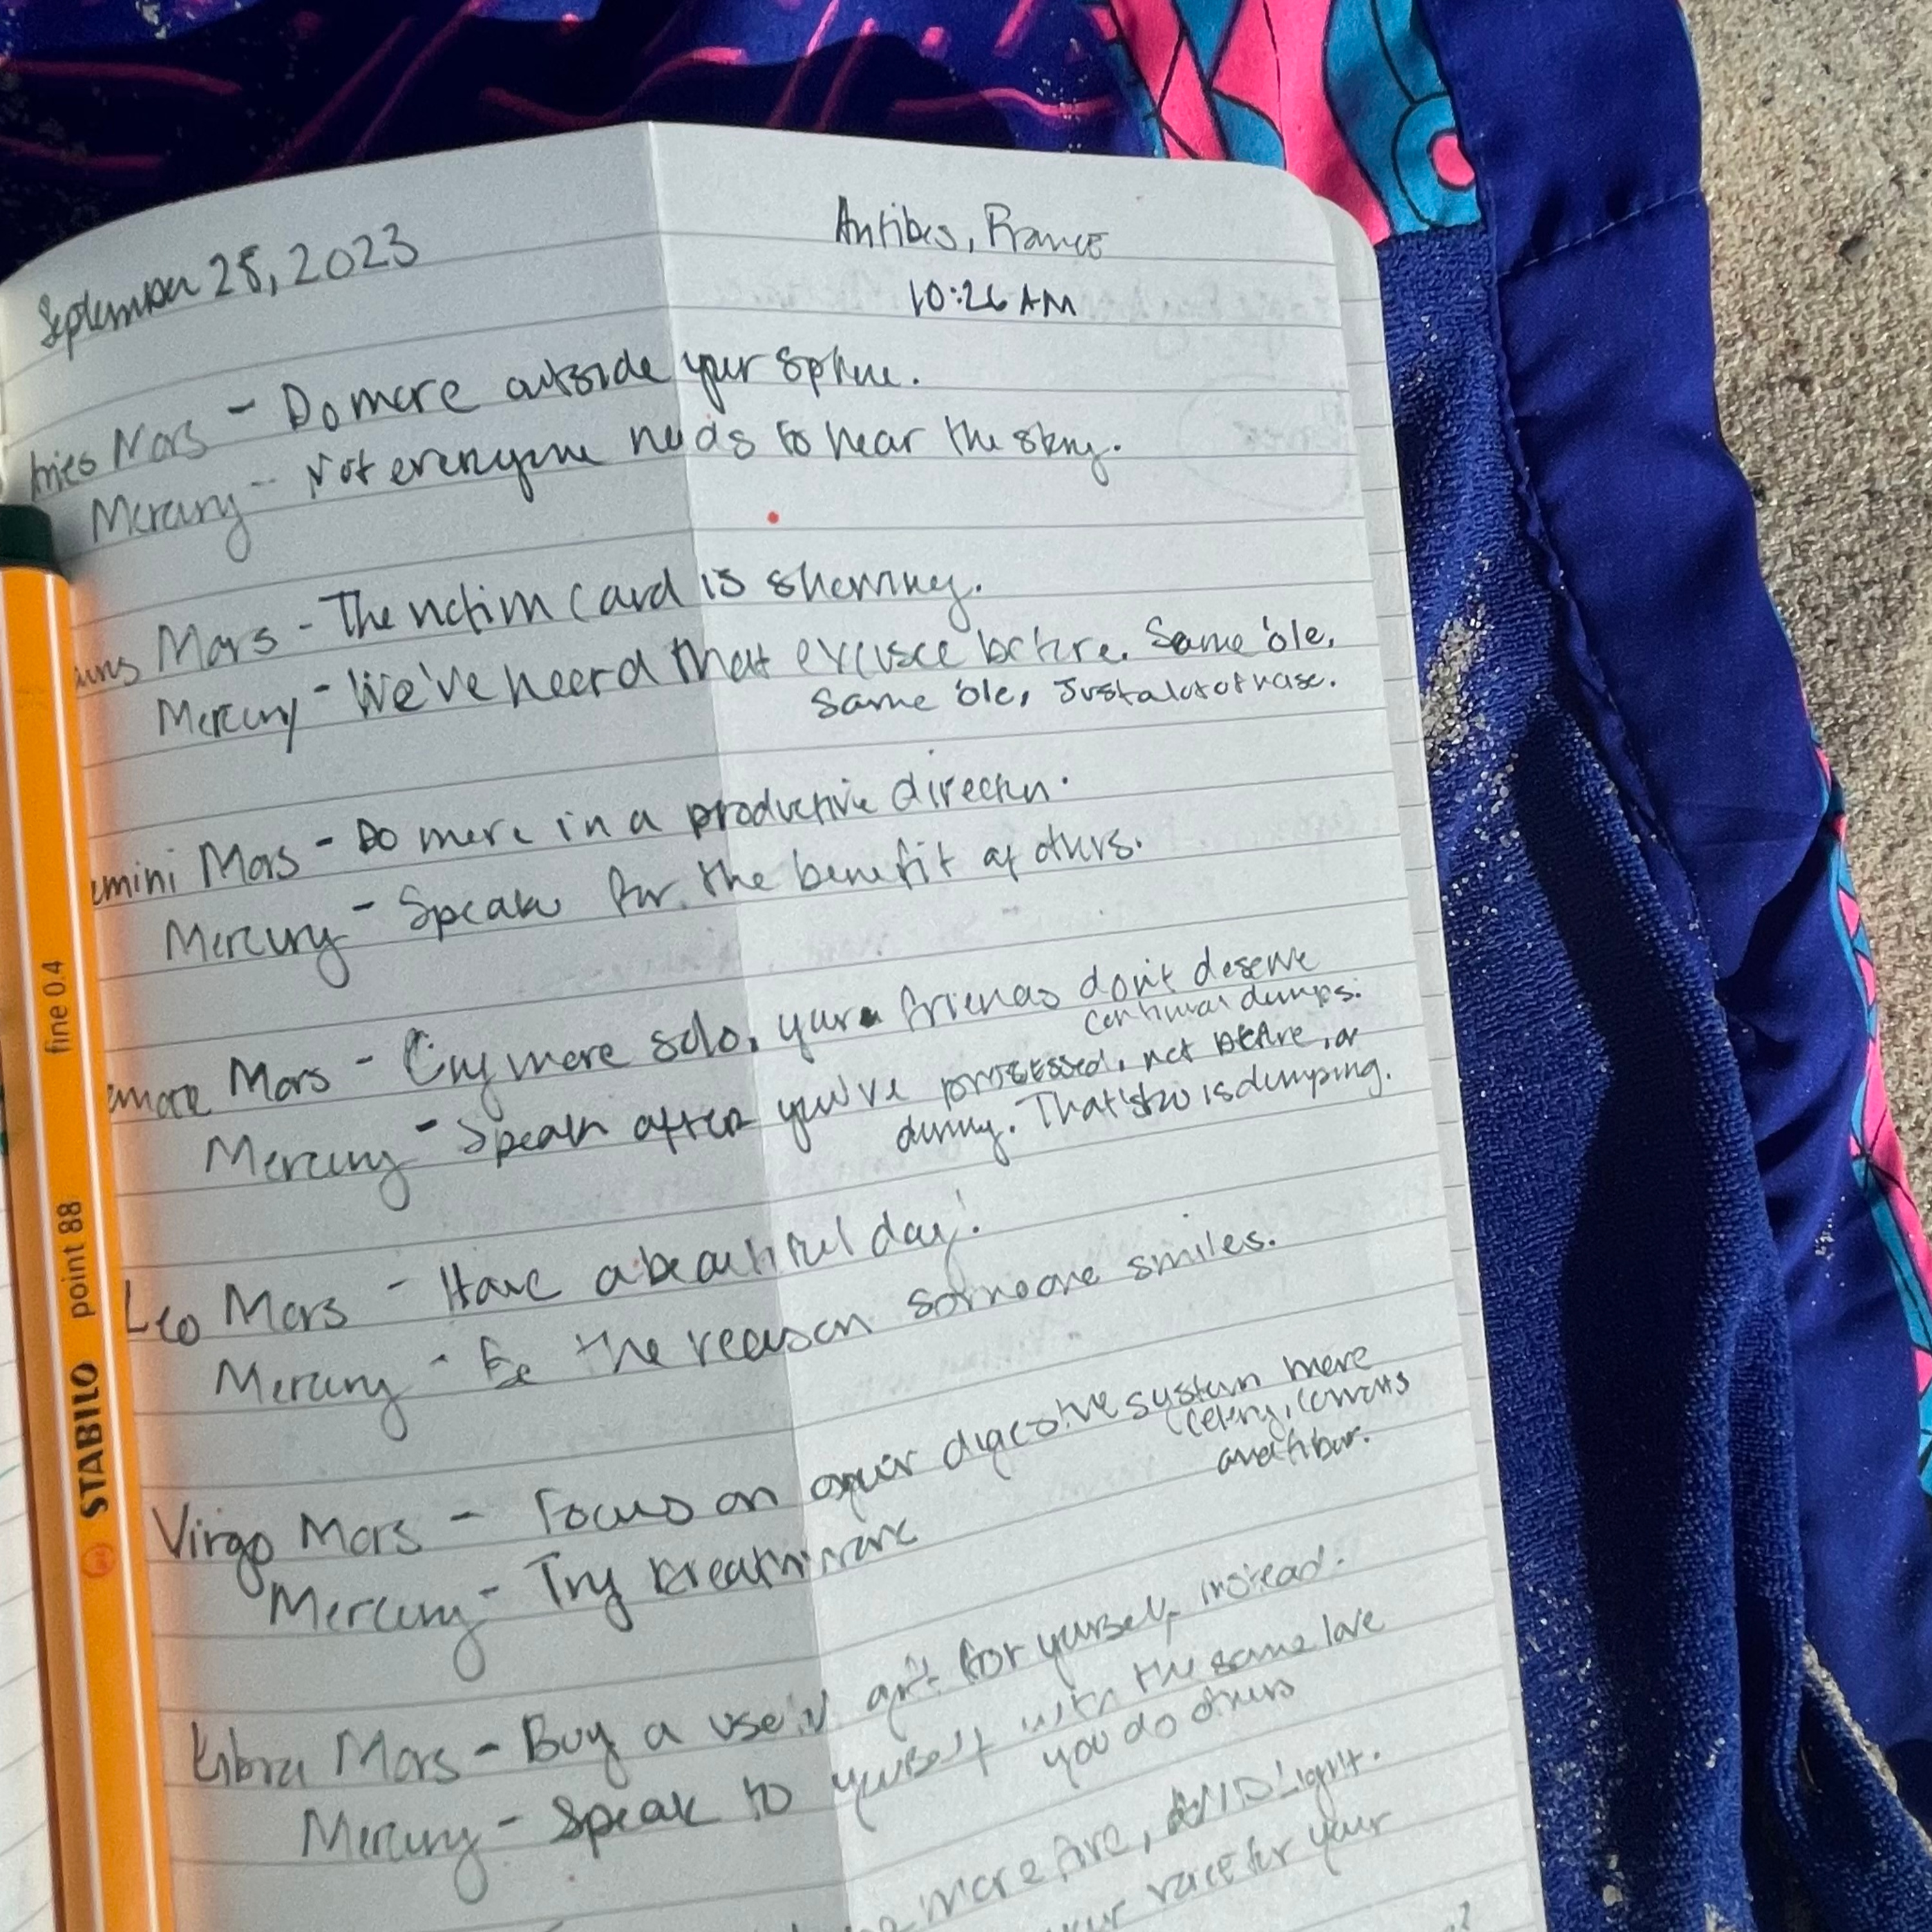 September 28, 2023
Antibes, France
10:26 AM
Aries Mars - Do more outside your sphere.
Mercury - Not everyone needs to hear the story.
Mars - The victim card is showing.
Mercury - We've heard that excusce before. Same 'ole,
Same 'ole, Just a lot of
emini Mars - Do more in a productive direction.
Mercury - Speak for the benefit of others.
Mars - Cry more solo, your friends don't deserve
continual dumps.
Mercury - Speak after you've processed, not before, or
during. That's is dumping.
Leo Mars - Have a beautiful day!
Mercury - Be the reason someone smiles.
Virgo Mars - Focus on your digestive system more
celery, carrots
and fiber.
Mercury - Try breathwork
Libra Mars - Buy a useful gift for yourself instead.
Mercury - Speak to yourself with the same love
you do others
more fire, AND Light.
your voice for your
STABILO point 88 fine 0.4